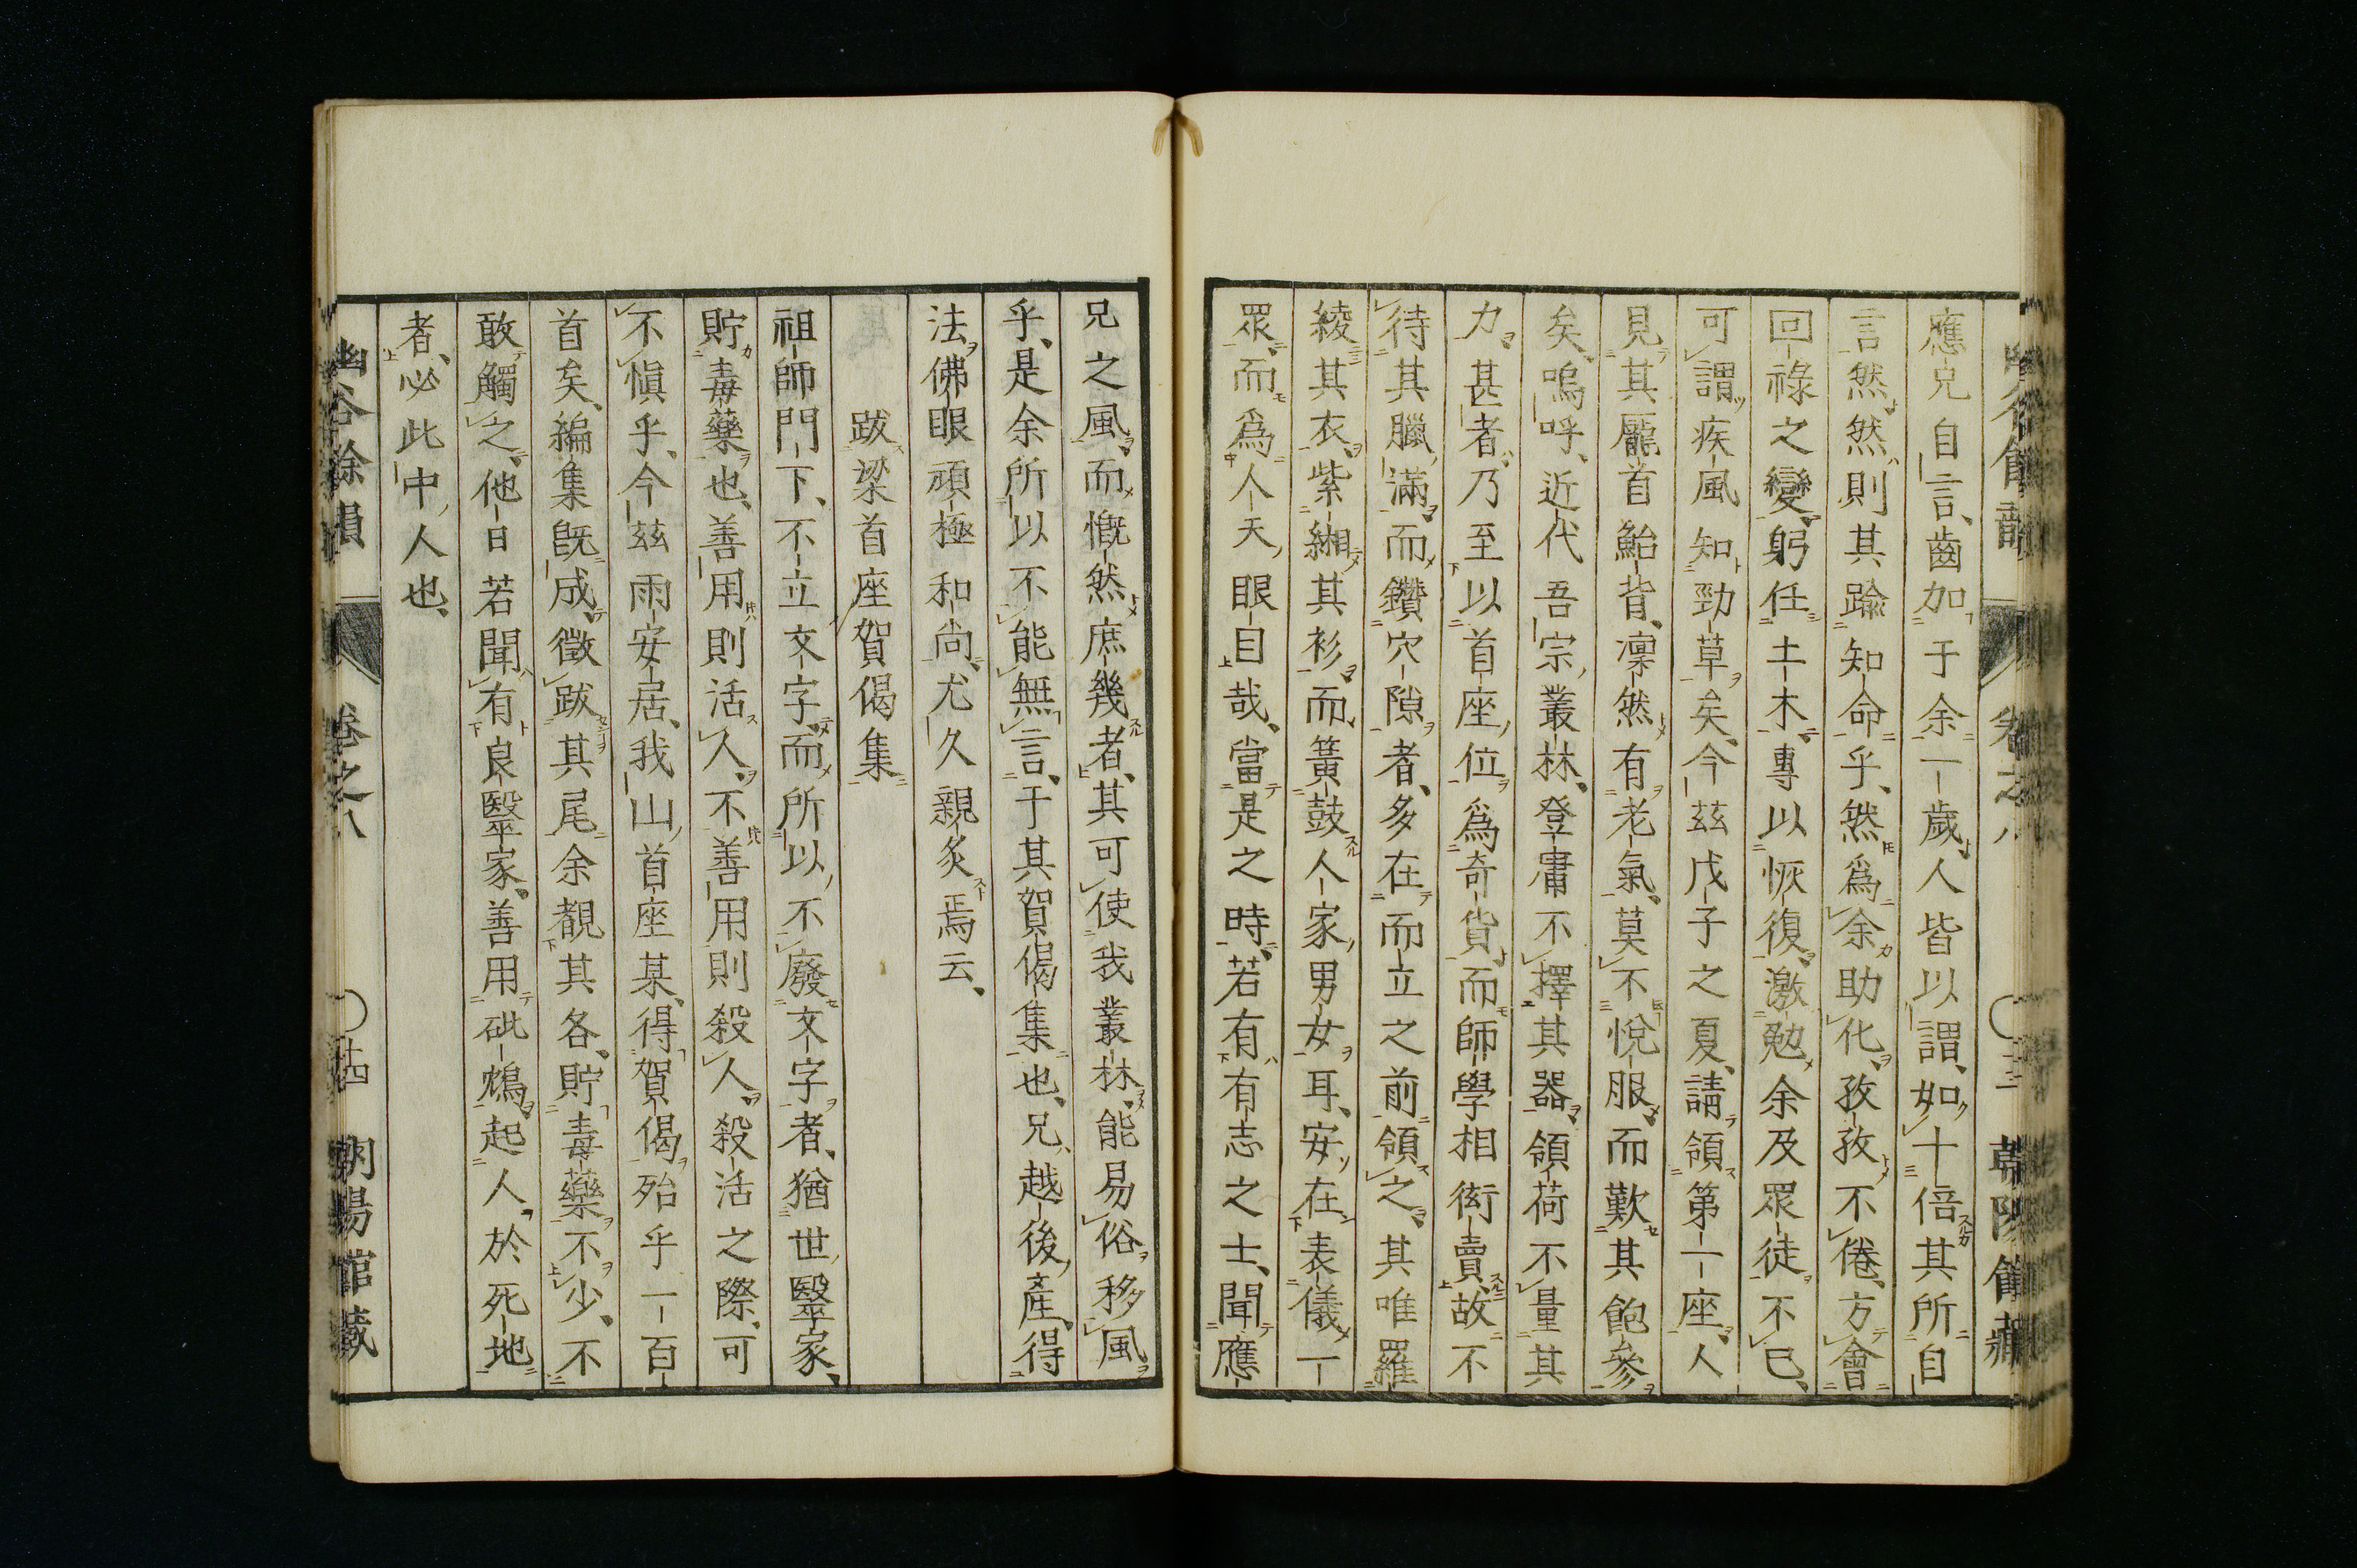 應兄自言、齒加于余一歲、人皆以謂、如十倍其所自
言然然則其踰知命乎、然爲余助化、孜孜不倦、方會
回祿之變、躬任土木、專以恢復、激勉余及眾徒不已、
可謂疾風知勁草矣、今茲戊子之夏、請領第一座、人
見其厖首鮐背、凜然有老氣、莫不悅服、而歎其飽參
矣、嗚呼、近代吾宗叢林、登庸不擇其器、領荷不量其
力、甚者、乃至以首座位爲奇貨、而師學相衒賣、故不
待其臘滿、而鑽穴隙者、多在而立之前領之、其唯羅
綾其衣、紫緗其衫、而簧鼓人家男女耳、安在表儀一
眾、而爲人天眼目哉、當是之時、若有有志之士、聞應
兄之風、而慨然庶幾者、其可使我叢林、能易俗移風
乎、是余所以不能無言、于其賀偈集也、兄越後產、得
法佛眼頑極和尚、尤久親炙焉云、
跋梁首座賀偈集
祖師門下、不立文字、而所以不廢文字者、猶世醫家、
貯毒藥也、善用則活人、不善用則殺人、殺活之際、可
不愼乎、今茲雨安居、我山首座某、得賀偈殆乎一百
首矣、編集既成、徵跋其尾余覩其各、貯毒藥不少、不
敢觸之、他日若聞有良醫家、善用砒鴆、起人於死地
者、必此中人也、
幽谷餘韻 卷之八 〇十四 朝陽館藏